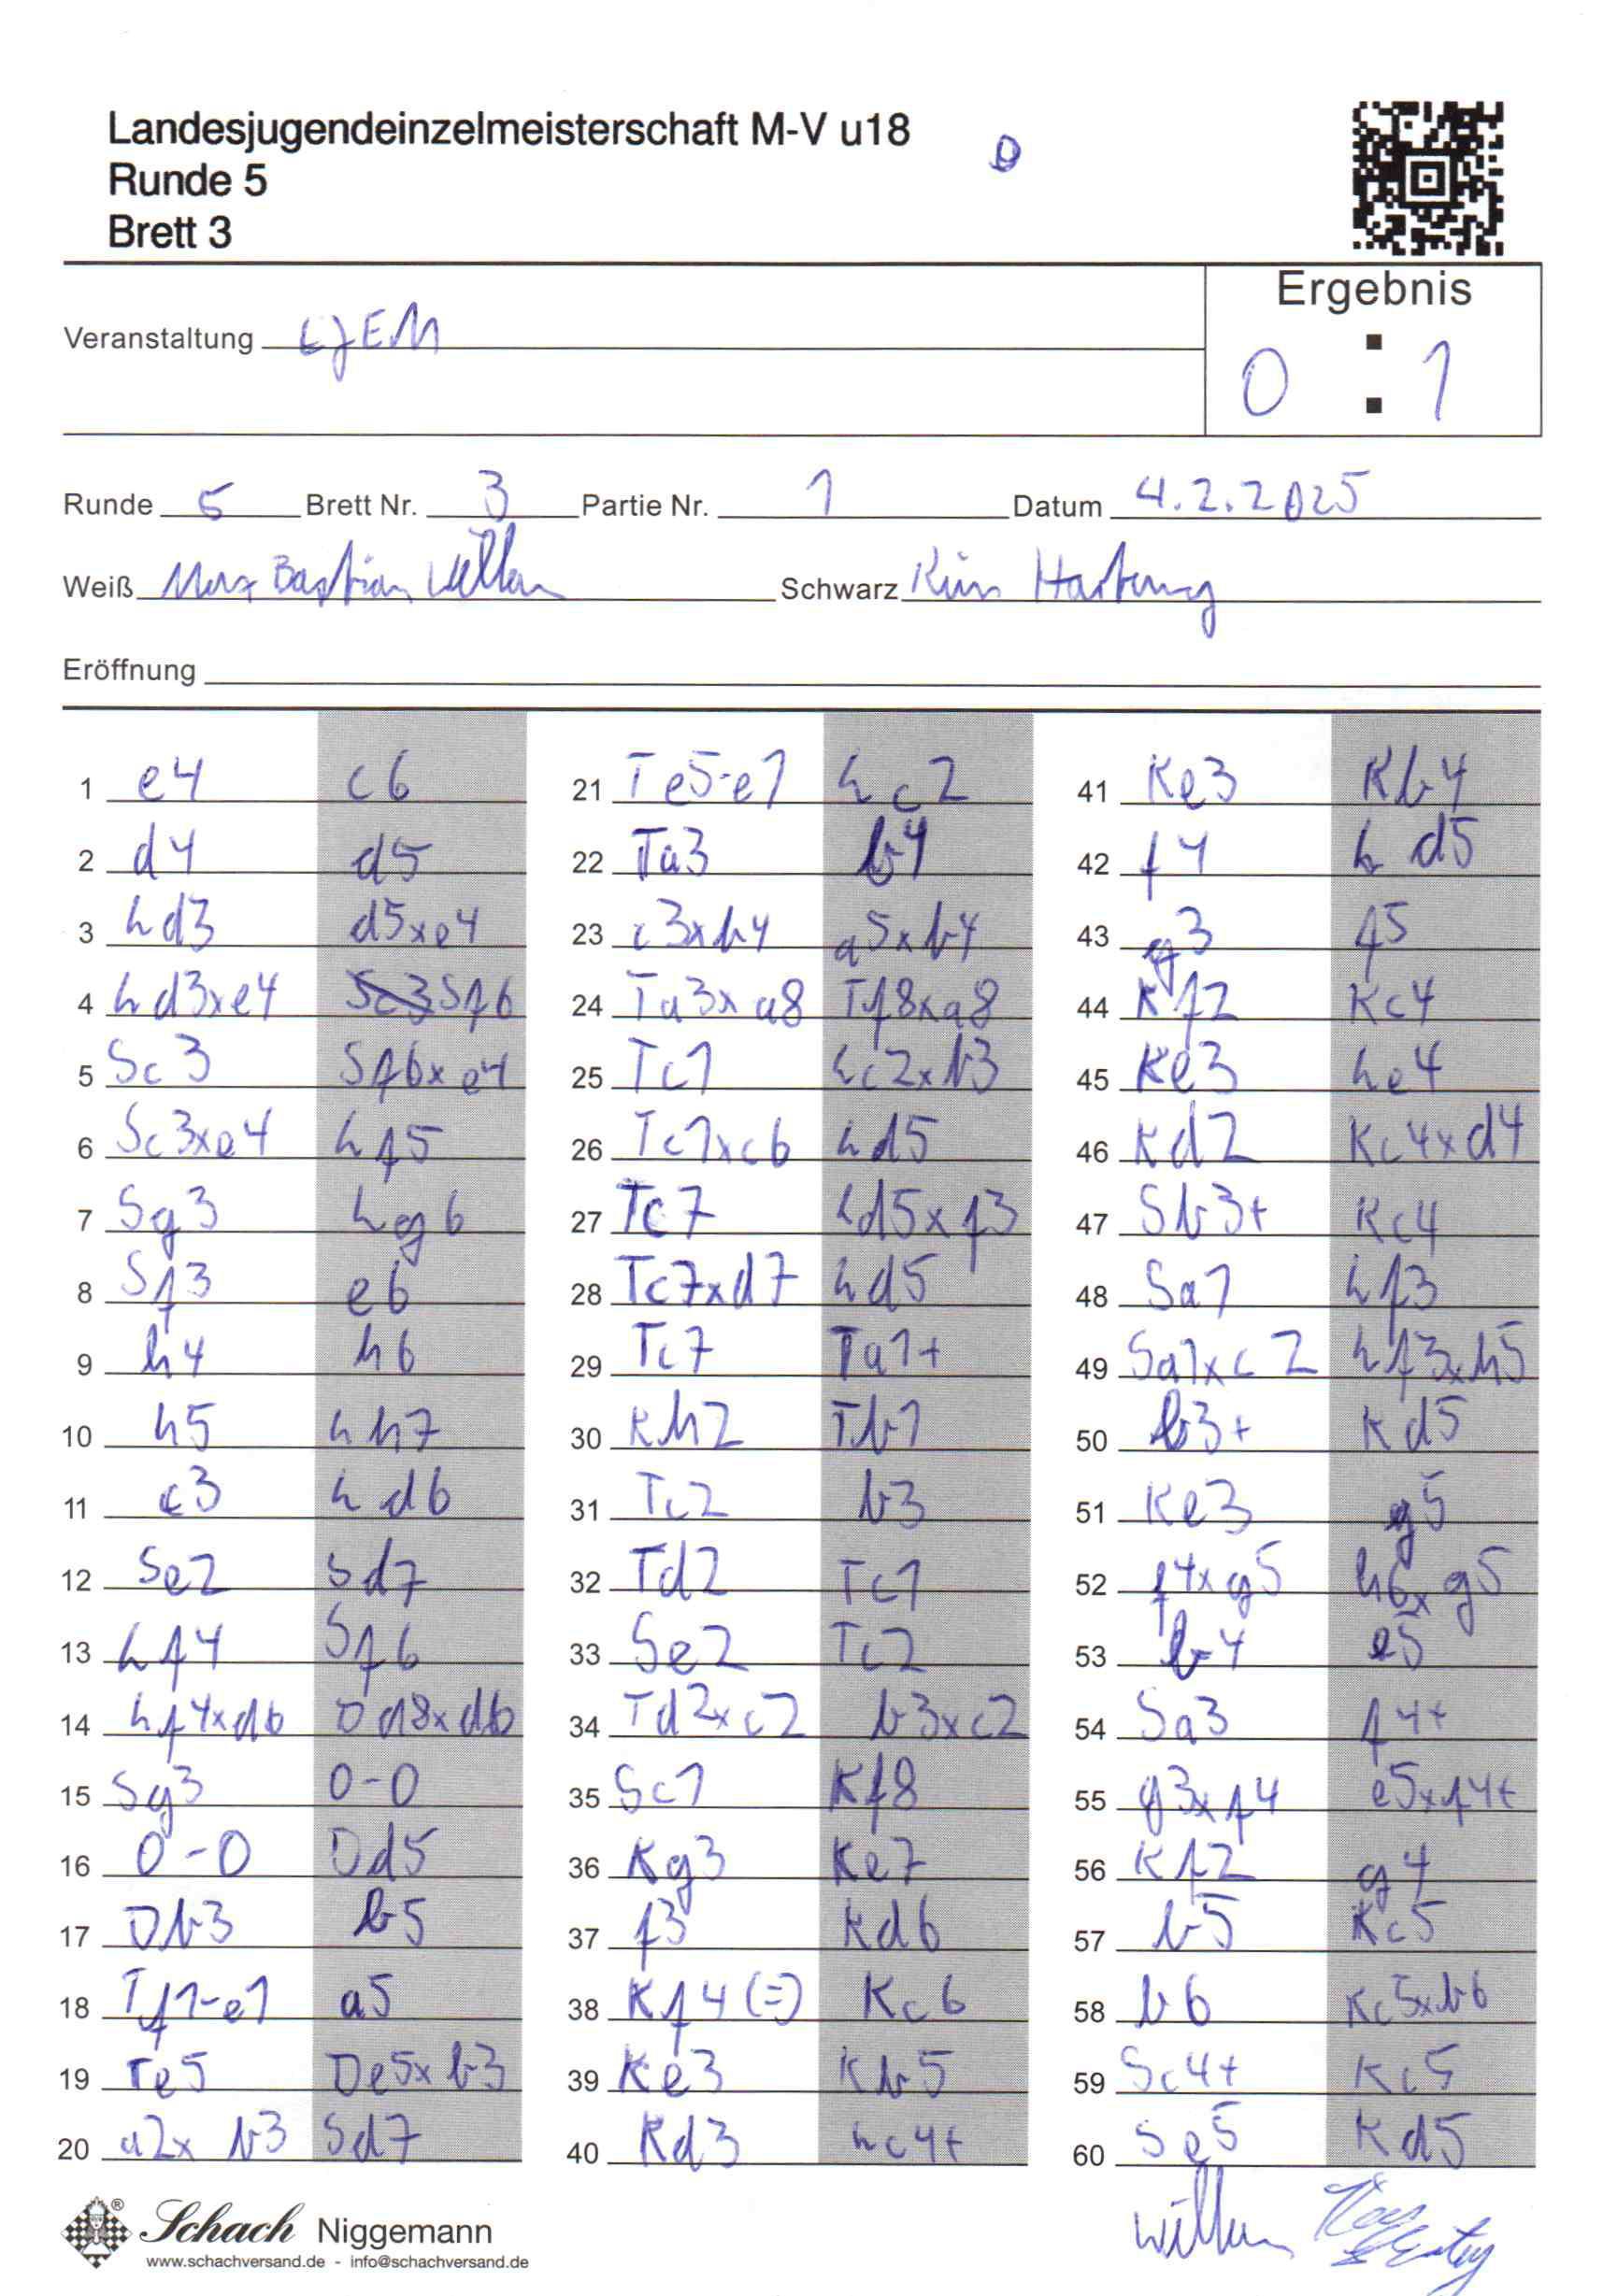 Landesjugendeinzelmeisterschaft M-V u18
Runde 5
Brett 3
Ergebnis
Veranstaltung LJEM
0 : 1
Runde 5 Brett Nr. 3 Partie Nr. 1 Datum 4.2.2025
Weiß Max Bastian Schwarz Kim Hartung
Eröffnung
1 e4 c6
2 d4 d5
3 Ld3 d5xe4
4 Ld3xe4 Sf6
5 Sc3 Sf6xe4
6 Sc3xe4 Lf5
7 Sg3 Lg6
8 Sf3 e6
9 h4 h6
10 h5 Lh7
11 c3 Ld6
12 Se2 Sd7
13 Lf4 Sf6
14 Lf4xd6 Dd8xd6
15 Sg3 0-0
16 0-0 Dd5
17 Db3 b5
18 Tf1-e1 a5
19 Te5 De5xb3
20 a2xb3 Sd7
21 Te5-e1 Lc2
22 Ta3 b4
23 c3xb4 a5xb4
24 Ta3xa8 Tf8xa8
25 Tc1 Lc2xb3
26 Tc1xc6 Ld5
27 Tc7 Ld5xf3
28 Tc7xd7 Ld5
29 Tc7 Ta1+
30 Kh2 Tb1
31 Tc2 b3
32 Td2 Tc1
33 Se2 Tc2
34 Td2xc2 b3xc2
35 Sc1 Kf8
36 Kg3 Ke7
37 f3 Kd6
38 Kf4 (=) Kc6
39 Ke3 Kb5
40 Kd3 Lc4+
41 Ke3 Kb4
42 f4 Ld5
43 g3 f5
44 Kf2 Kc4
45 Ke3 Le4
46 Kd2 Kc4xd4
47 Sb3+ Kc4
48 Sa1 Lf3
49 Sa1xc2 Lf3xh5
50 b3+ Kd5
51 Ke3 g5
52 f4xg5 h6xg5
53 b4 e5
54 Sa3 f4+
55 g3xf4 e5xf4+
56 Kf2 g4
57 b5 Kc5
58 b6 Kc5xb6
59 Sc4+ Kc5
60 Se5 Kd5
Schach Niggemann
www.schachversand.de - info@schachversand.de